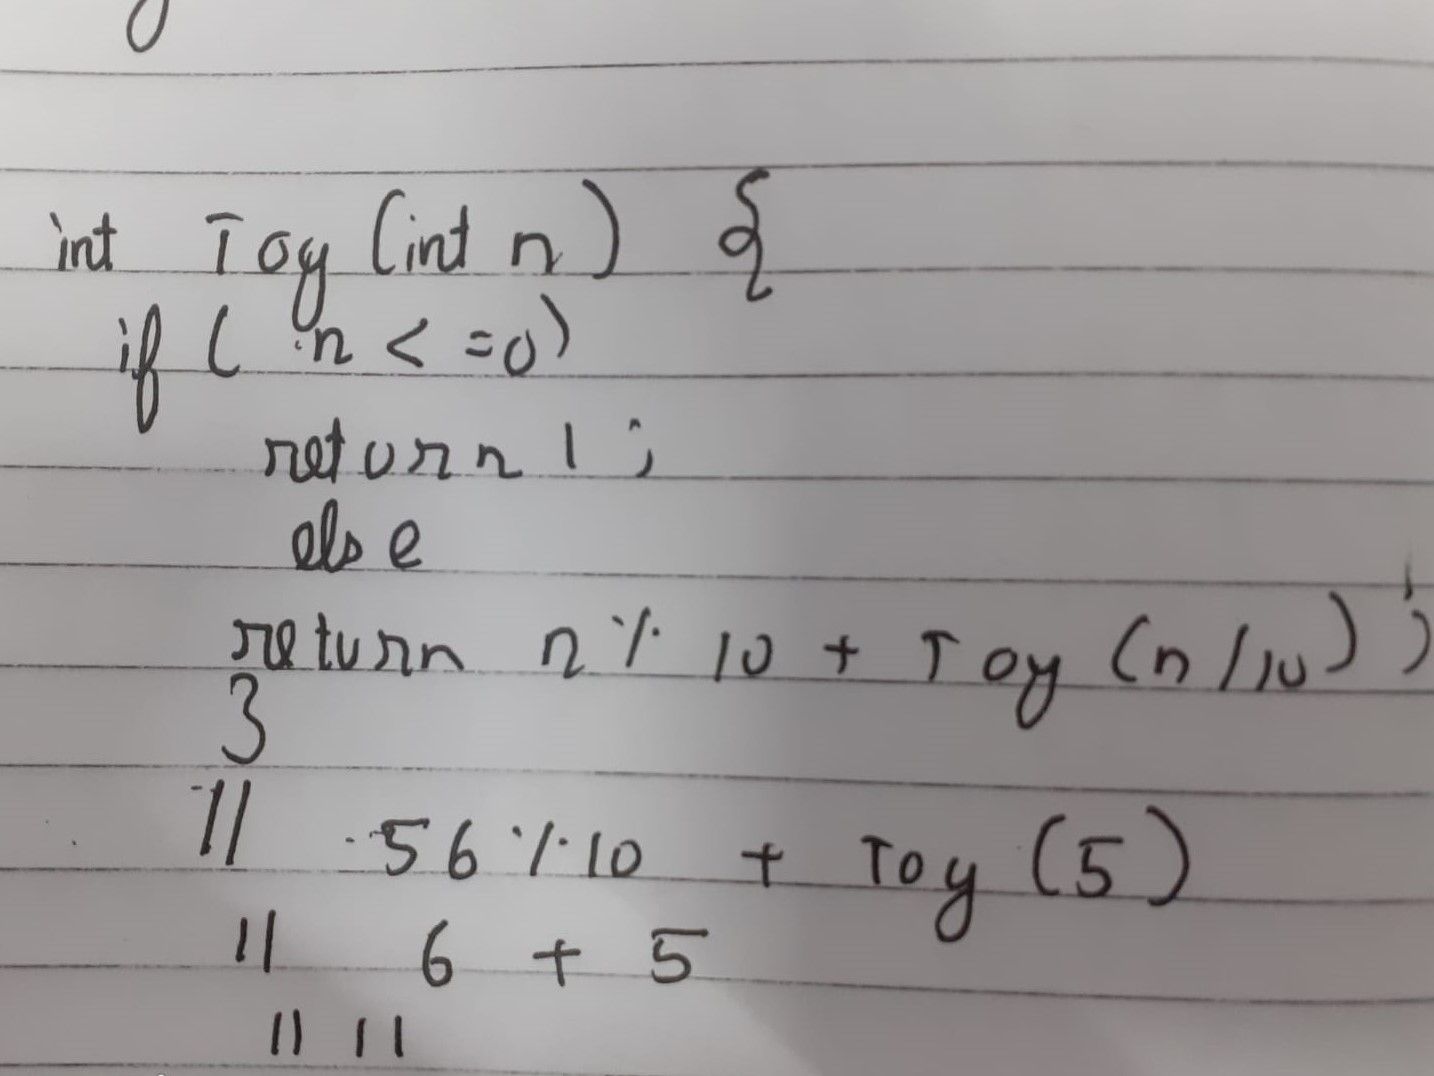 int Toy (int n) {
if ( n < =0)
return 1 ;
else
return n % 10 + Toy (n/10) ;
}
// 56 % 10 + Toy (5)
// 6 + 5
// 11